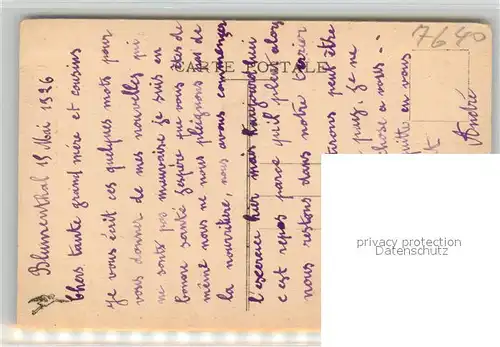 Blumenthal 19 Mai 1926
Chers tante grand mère et cousins
Je vous écrit ces quelques mots pour
vous donner de mes nouvelles qui
ne sont pas mauvaise je suis en
bonne santé j'espère que vous etes de
même nous ne nous pleignons pas de
la nourriture, nous avons commençer
l'exercice hier mais haujourd'hui
c'est repos parce qu'il pleut alors
nous restons dans notre
peut être
je ne
chose a vous
en vous
André
CARTE POSTALE
7640
privacy protection
watermark